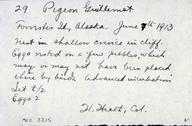 29 Pigeon Guillemot
Forrester Id, Alaska June 7th 1913
Nest in shallow crevice in cliff.
Eggs rested on a few pebbles, which
may or may not have been placed
there by birds. Advanced incubation
Set 1/2
Eggs 2
H. Heath, Col.